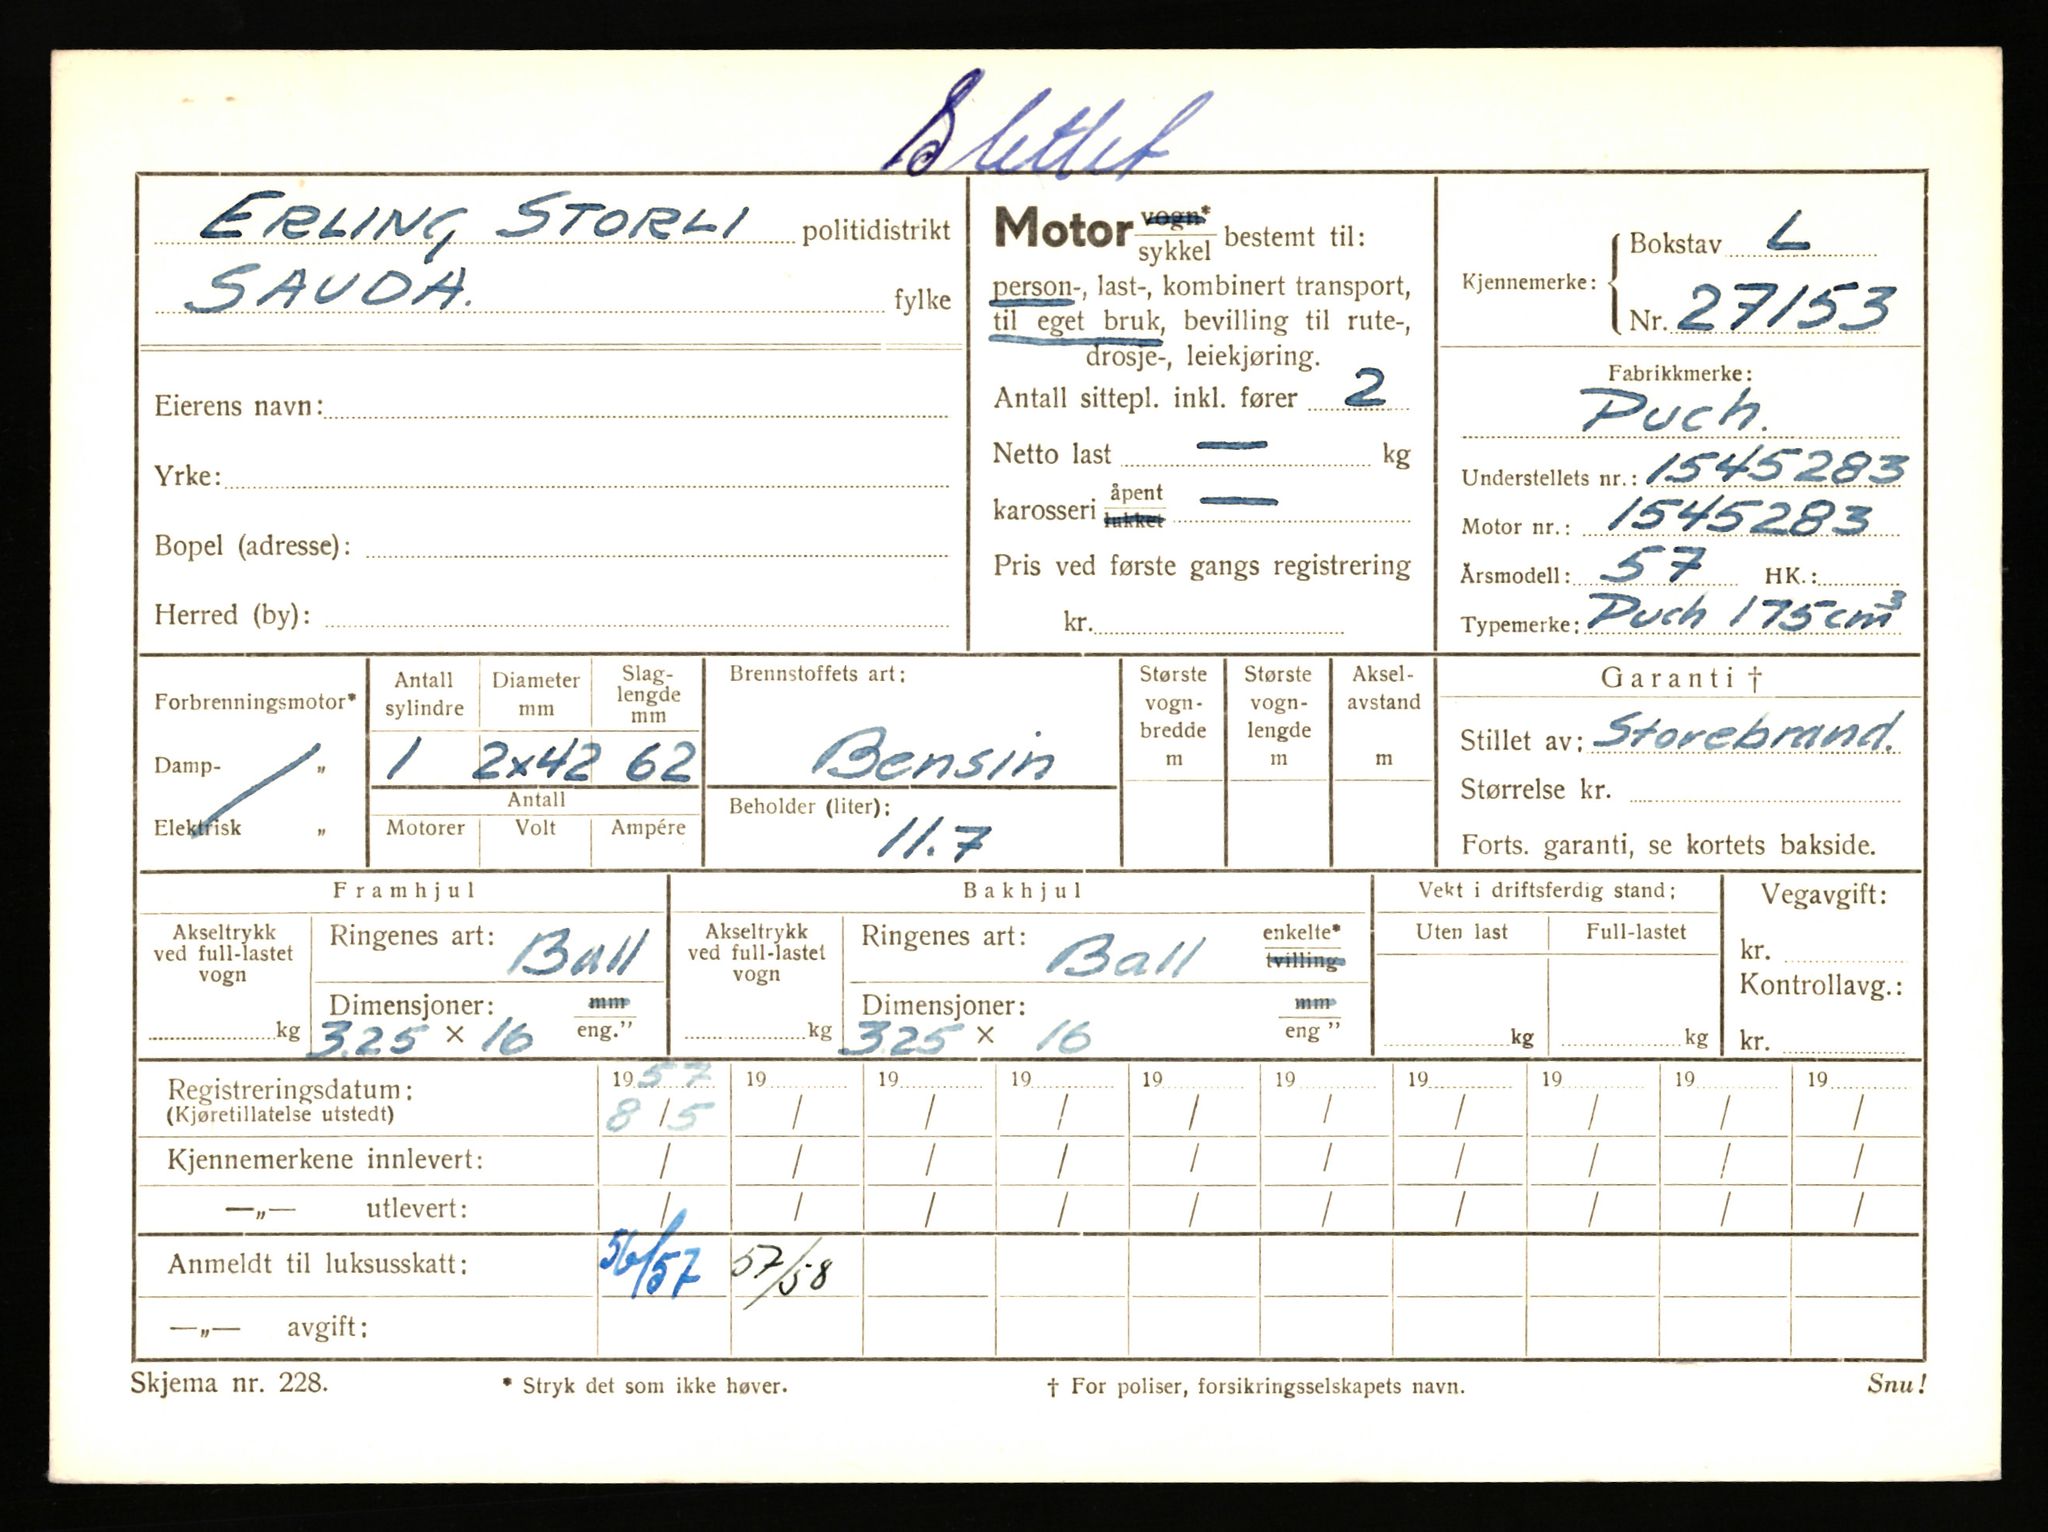 Slettet
ERLING STORLI politidistrikt
SAUDA. fylke
Eierens navn:
Yrke:
Bopel (adresse):
Herred (by):
Motor vogn* sykkel bestemt til:
person-, last-, kombinert transport,
til eget bruk, bevilling til rute-,
drosje-, leiekjøring.
Antall sittepl. inkl. fører 2
Netto last — kg
karosseri åpent lukket —
Pris ved første gangs registrering
kr.
Kjennemerke: Bokstav L
Nr. 27153
Fabrikkmerke:
Puch.
Understellets nr.: 1545283
Motor nr.: 1545283
Årsmodell: 57 HK.:
Typemerke: Puch 175 cm³
Forbrenningsmotor*
Damp- „
Elektrisk „
Antall sylindre
1
Diameter mm
2x42
Slag-lengde mm
62
Antall
Motorer Volt Ampére
Brennstoffets art:
Bensin
Beholder (liter):
11.7
Største vogn-bredde m
Største vogn-lengde m
Aksel-avstand m
Garanti †
Stillet av: Storebrand.
Størrelse kr.
Forts. garanti, se kortets bakside.
Framhjul
Akseltrykk ved full-lastet vogn
kg
Ringenes art: Ball
Dimensjoner: mm
3.25 × 16 eng.”
Bakhjul
Akseltrykk ved full-lastet vogn
kg
Ringenes art: Ball enkelte* tvilling
Dimensjoner: mm
325 × 16 eng ”
Vekt i driftsferdig stand:
Uten last Full-lastet
kg kg
Vegavgift:
kr.
Kontrollavg.:
kr.
Registreringsdatum: 1957 19 19 19 19 19 19 19 19 19
(Kjøretillatelse utstedt) 8/5 / / / / / / / / /
Kjennemerkene innlevert: / / / / / / / / / /
—„— utlevert: / / / / / / / / / /
Anmeldt til luksusskatt: 56/57 57/58
—„— avgift:
Skjema nr. 228. * Stryk det som ikke høver. † For poliser, forsikringsselskapets navn. Snu!